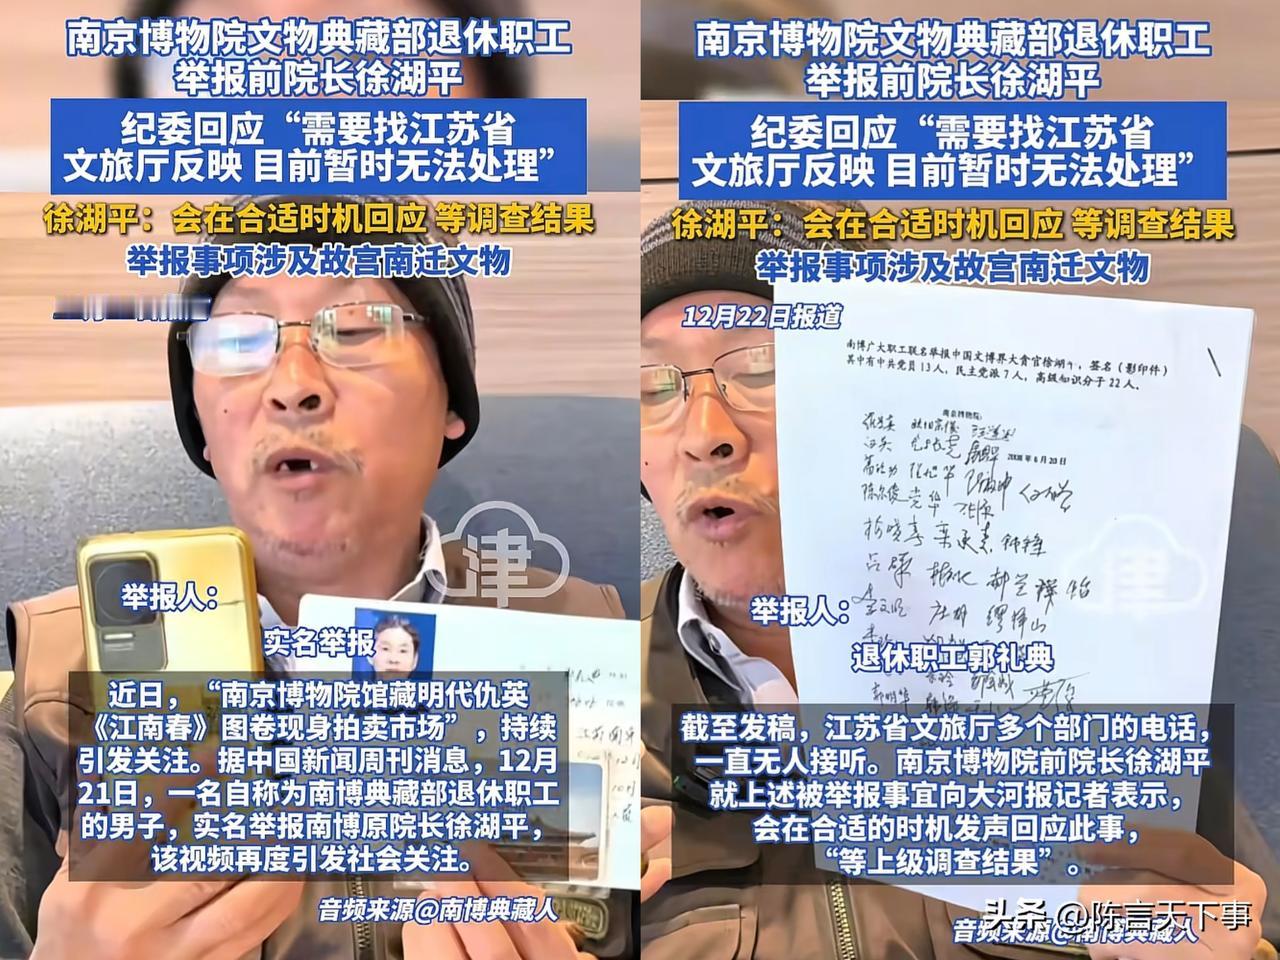 南京博物院文物典藏部退休职工
举报前院长徐湖平
纪委回应“需要找江苏省
文旅厅反映 目前暂时无法处理”
徐湖平：会在合适时机回应 等调查结果
举报事项涉及故宫南迁文物
津
举报人：
实名举报
近日，“南京博物院馆藏明代仇英
《江南春》图卷现身拍卖市场”，持续
引发关注。据中国新闻周刊消息，12月
21日，一名自称为南博典藏部退休职工
的男子，实名举报南博原院长徐湖平，
该视频再度引发社会关注。
音频来源@南博典藏人
南京博物院文物典藏部退休职工
举报前院长徐湖平
纪委回应“需要找江苏省
文旅厅反映 目前暂时无法处理”
徐湖平：会在合适时机回应 等调查结果
举报事项涉及故宫南迁文物
12月22日报道
南博广大职工联名举报中国文博界大贪官徐湖平，签名（影印件）
其中有中共党员13人，民主党派7人，高级知识分子22人。
南京博物院
2008年6月20日
津
举报人：
退休职工郭礼典
截至发稿，江苏省文旅厅多个部门的电话，
一直无人接听。南京博物院前院长徐湖平
就上述被举报事宜向大河报记者表示，
会在合适的时机发声回应此事，
“等上级调查结果”。
音频来源@南博典藏人
头条 @陈言天下事